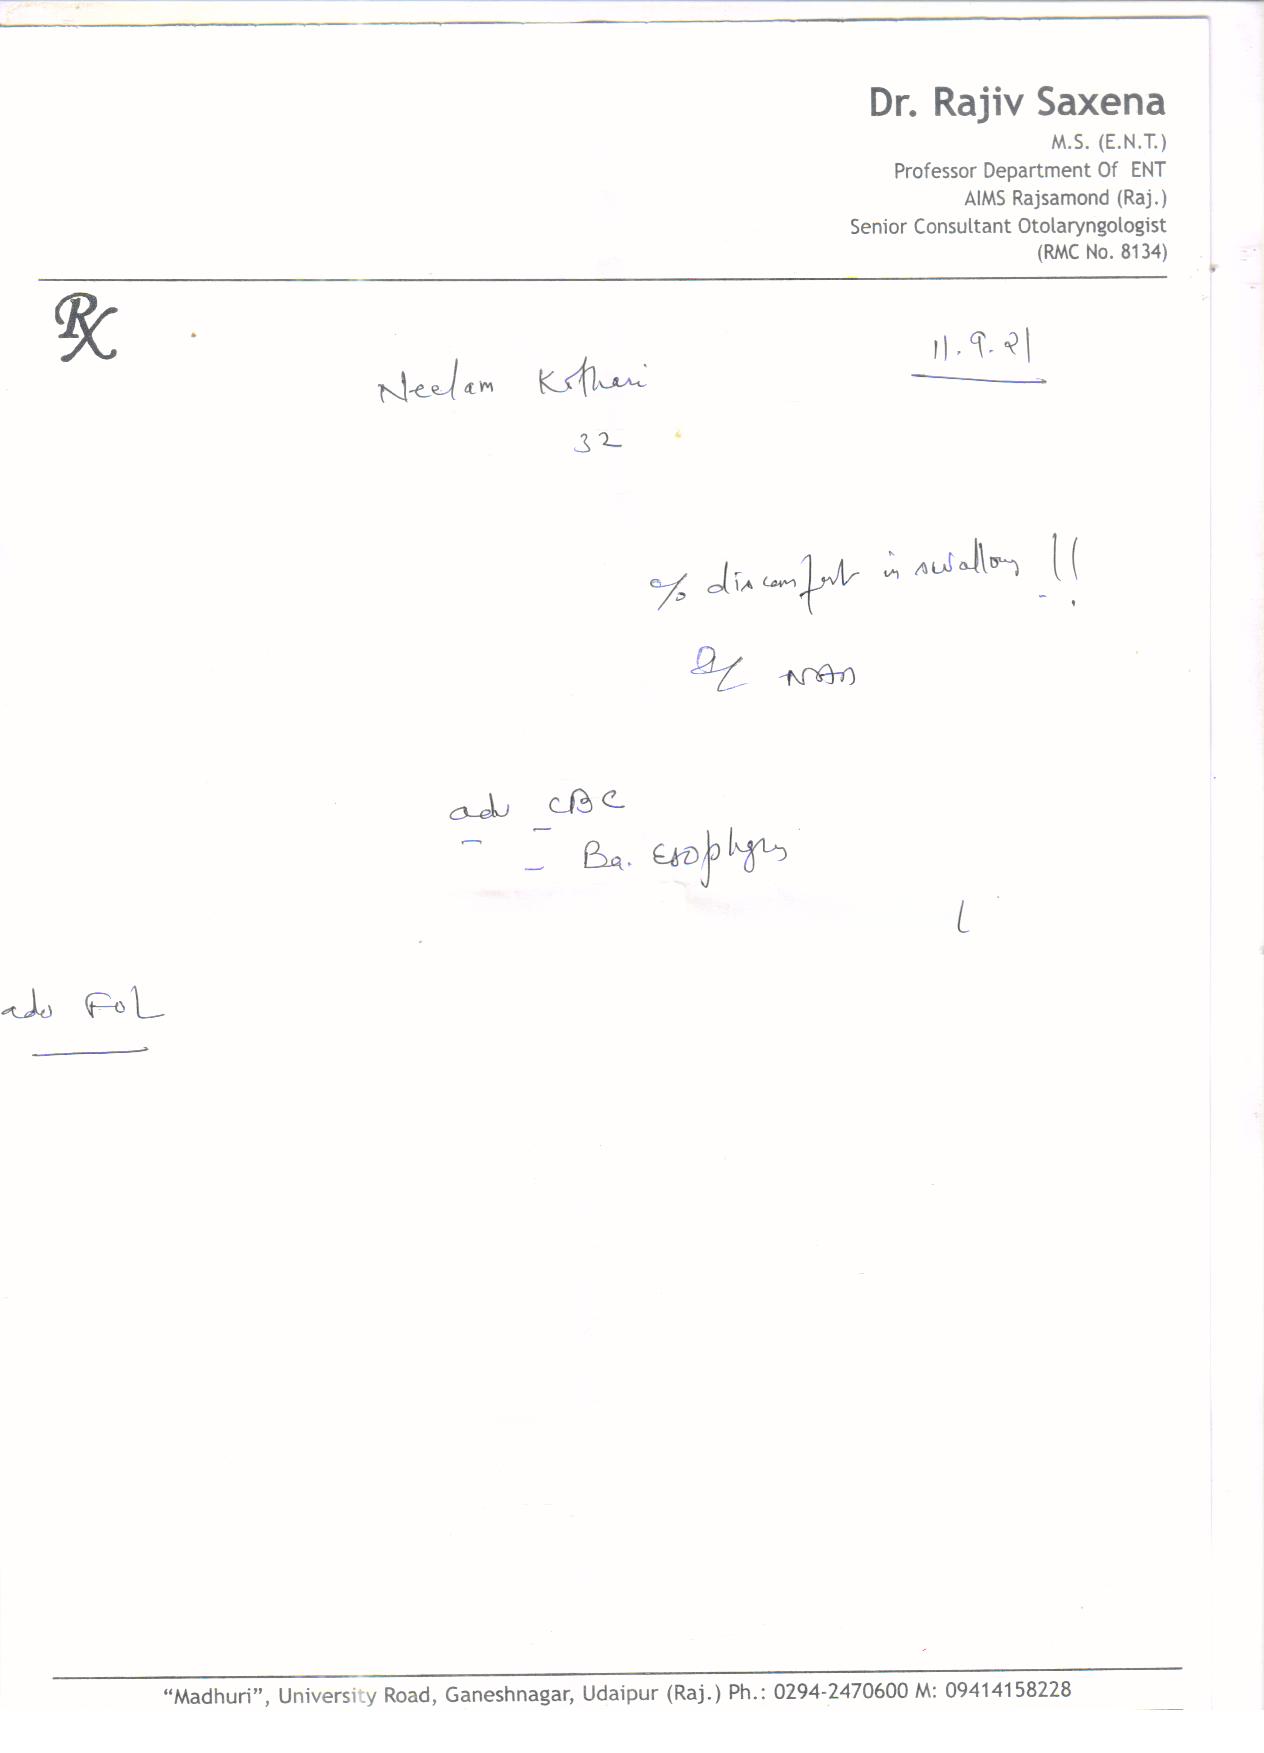 Dr. Rajiv Saxena
M.S. (E.N.T.)
Professor Department Of ENT
AIMS Rajsamond (Raj.)
Senior Consultant Otolaryngologist
(RMC No. 8134)
Rx
11.9.21
Neelam Kothari
32
c/o discomfort in swallowing !!
O/E NAD
adv CBC
- Ba. Esophagus
adv FOL
“Madhuri”, University Road, Ganeshnagar, Udaipur (Raj.) Ph.: 0294-2470600 M: 09414158228